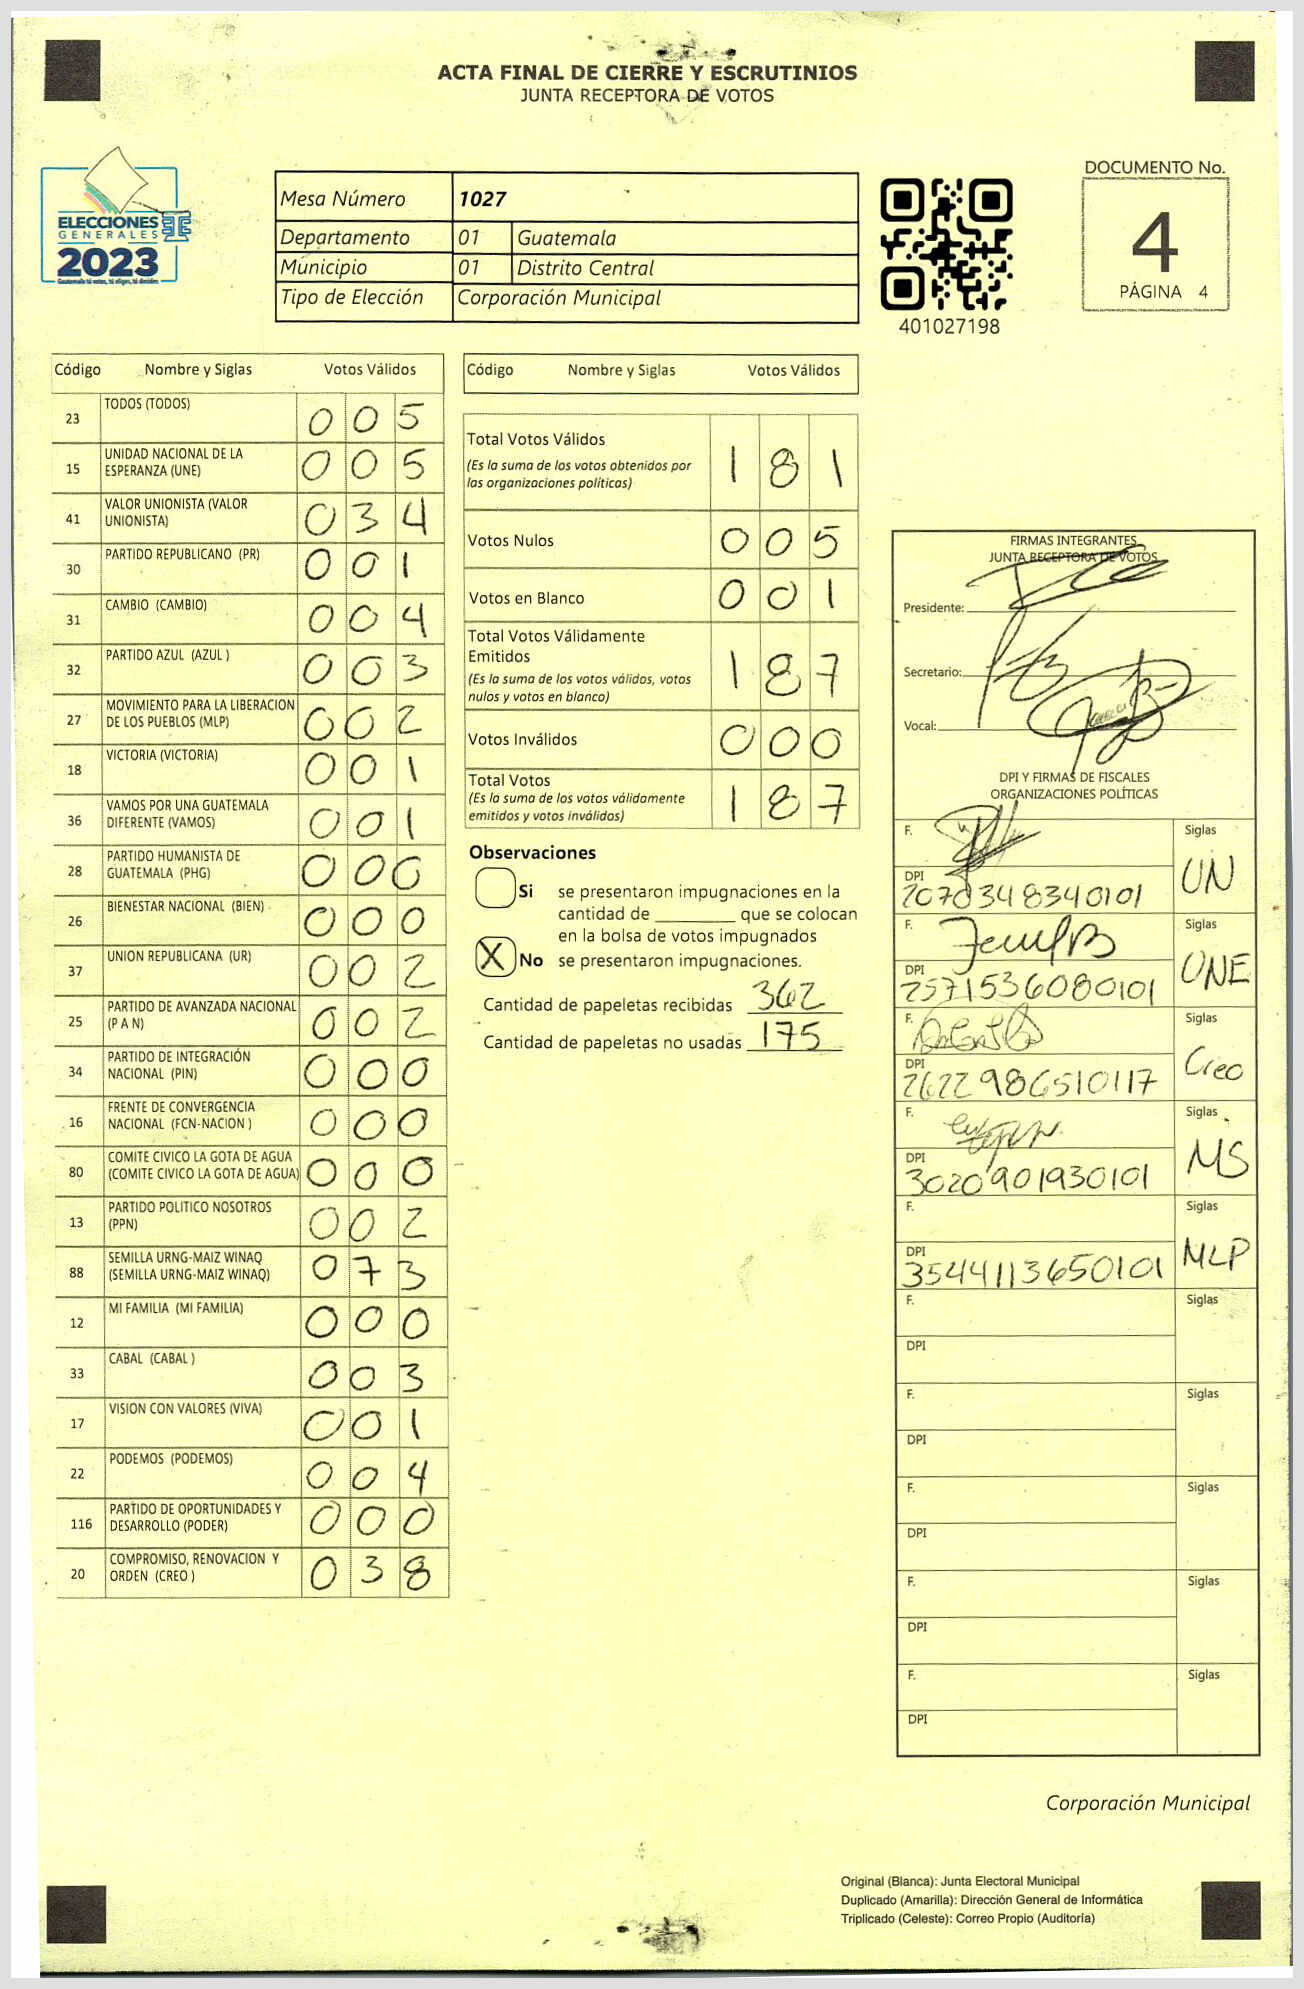 ACTA FINAL DE CIERRE Y ESCRUTINIOS
JUNTA RECEPTORA DE VOTOS
ELECCIONES
GENERALES
2023
Guatemala tú votas, tú eliges, tú decides
Mesa Número 1027
Departamento 01 Guatemala
Municipio 01 Distrito Central
Tipo de Elección Corporación Municipal
401027198
DOCUMENTO No.
4
PÁGINA 4
Código Nombre y Siglas Votos Válidos
23 TODOS (TODOS) 0 0 5
15 UNIDAD NACIONAL DE LA ESPERANZA (UNE) 0 0 5
41 VALOR UNIONISTA (VALOR UNIONISTA) 0 3 4
30 PARTIDO REPUBLICANO (PR) 0 0 1
31 CAMBIO (CAMBIO) 0 0 4
32 PARTIDO AZUL (AZUL ) 0 0 3
27 MOVIMIENTO PARA LA LIBERACION DE LOS PUEBLOS (MLP) 0 0 2
18 VICTORIA (VICTORIA) 0 0 1
36 VAMOS POR UNA GUATEMALA DIFERENTE (VAMOS) 0 0 1
28 PARTIDO HUMANISTA DE GUATEMALA (PHG) 0 0 0
26 BIENESTAR NACIONAL (BIEN) 0 0 0
37 UNION REPUBLICANA (UR) 0 0 2
25 PARTIDO DE AVANZADA NACIONAL (P A N) 0 0 2
34 PARTIDO DE INTEGRACIÓN NACIONAL (PIN) 0 0 0
16 FRENTE DE CONVERGENCIA NACIONAL (FCN-NACION ) 0 0 0
80 COMITE CIVICO LA GOTA DE AGUA (COMITE CIVICO LA GOTA DE AGUA) 0 0 0
13 PARTIDO POLITICO NOSOTROS (PPN) 0 0 2
88 SEMILLA URNG-MAIZ WINAQ (SEMILLA URNG-MAIZ WINAQ) 0 7 3
12 MI FAMILIA (MI FAMILIA) 0 0 0
33 CABAL (CABAL ) 0 0 3
17 VISION CON VALORES (VIVA) 0 0 1
22 PODEMOS (PODEMOS) 0 0 4
116 PARTIDO DE OPORTUNIDADES Y DESARROLLO (PODER) 0 0 0
20 COMPROMISO, RENOVACION Y ORDEN (CREO ) 0 3 8
Código Nombre y Siglas Votos Válidos
Total Votos Válidos 1 8 1
(Es la suma de los votos obtenidos por
las organizaciones políticas)
Votos Nulos 0 0 5
Votos en Blanco 0 0 1
Total Votos Válidamente
Emitidos 1 8 7
(Es la suma de los votos válidos, votos
nulos y votos en blanco)
Votos Inválidos 0 0 0
Total Votos 1 8 7
(Es la suma de los votos válidamente
emitidos y votos inválidos)
Observaciones
Si se presentaron impugnaciones en la
cantidad de ________ que se colocan
en la bolsa de votos impugnados
X No se presentaron impugnaciones.
Cantidad de papeletas recibidas 362
Cantidad de papeletas no usadas 175
FIRMAS INTEGRANTES
JUNTA RECEPTORA DE VOTOS
Presidente:
Secretario:
Vocal:
DPI Y FIRMAS DE FISCALES
ORGANIZACIONES POLÍTICAS
F. Siglas
DPI 2070348340101 UN
F. Siglas
DPI 2571536080101 UNE
F. Siglas
DPI 2622986510117 Creo
F. Siglas
DPI 3020901930101 MS
F. Siglas
DPI 3544113650101 MLP
F. Siglas
DPI
F. Siglas
DPI
F. Siglas
DPI
F. Siglas
DPI
F. Siglas
DPI
Corporación Municipal
Original (Blanca): Junta Electoral Municipal
Duplicado (Amarilla): Dirección General de Informática
Triplicado (Celeste): Correo Propio (Auditoría)